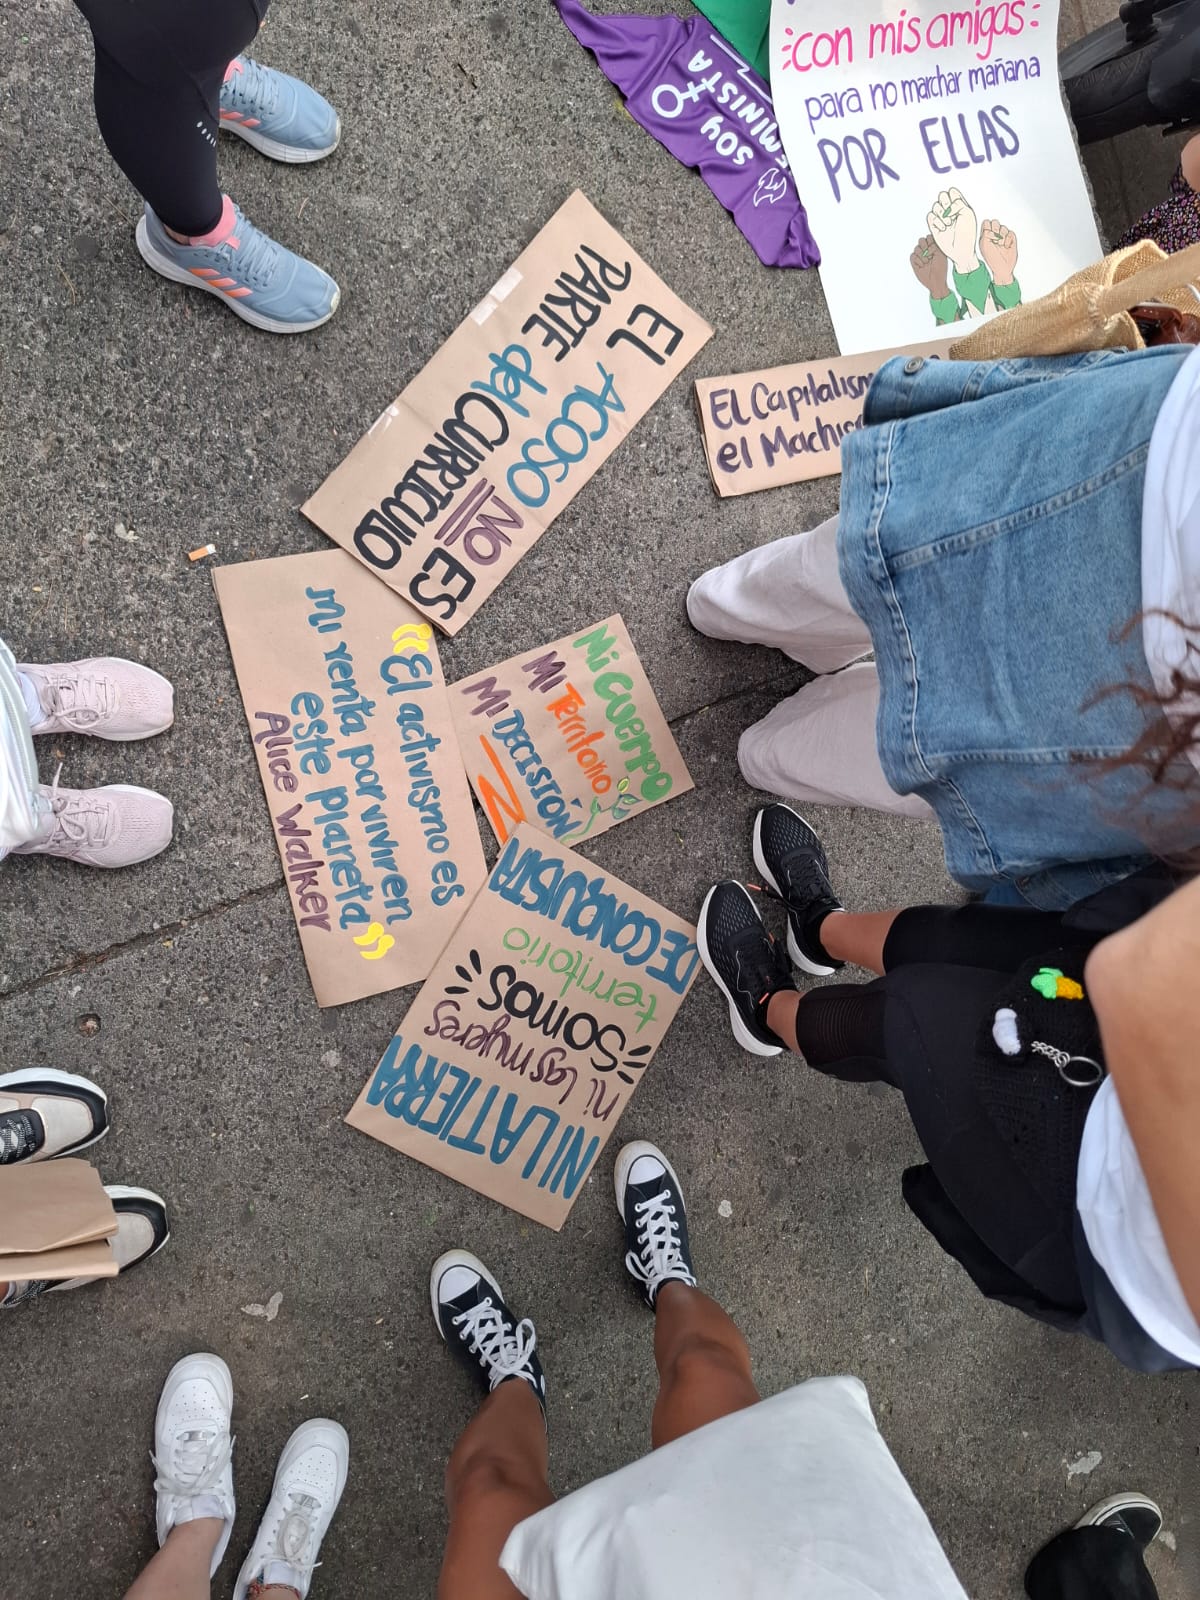 con mis amigas
para no marchar mañana
POR ELLAS
SOY
FEMINISTA
EL ACOSO NO ES
PARTE del CURRICULO
El Capitalismo
el Machismo
"El activismo es
mi renta por vivir en
este planeta"
Alice Walker
Mi CUERPO
MI Territorio
MI DECISIÓN
NI LA TIERRA
ni las mujeres
SOMOS
territorio
DE CONQUISTA